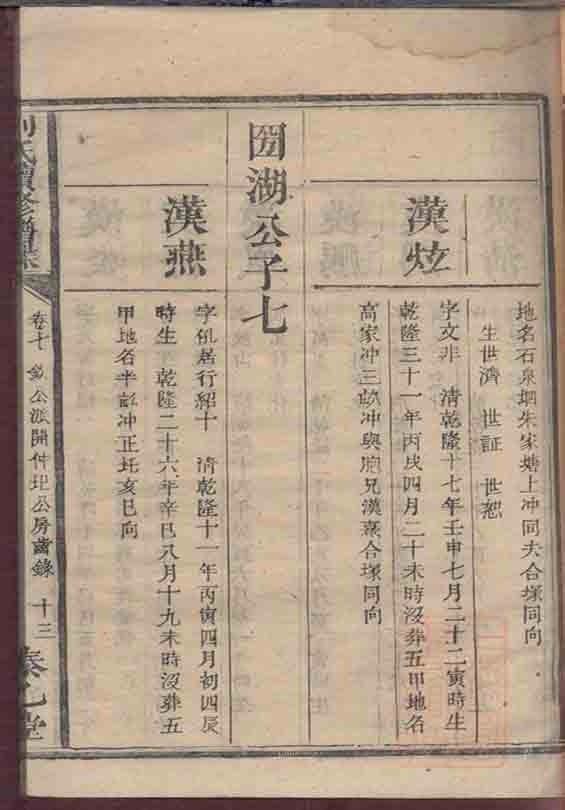 地名石泉坝朱家塘上冲同夫合塚同向
生世濟 世証 世恕
漢炫
字文非 清乾隆十七年壬申七月二十二寅時生
乾隆三十一年丙戌四月二十未時沒葬五甲地名
高家冲三畝冲與胞兄漢袞合塚同向
囦湖公子七
漢燕
字孔居行紹十 清乾隆十一年丙寅四月初四辰
時生 乾隆二十六年辛巳八月十九未時沒葬五
甲地名半畝冲正圫亥巳向
劉氏續修譜
卷七 公派開仲 公房齒錄 十三
堂